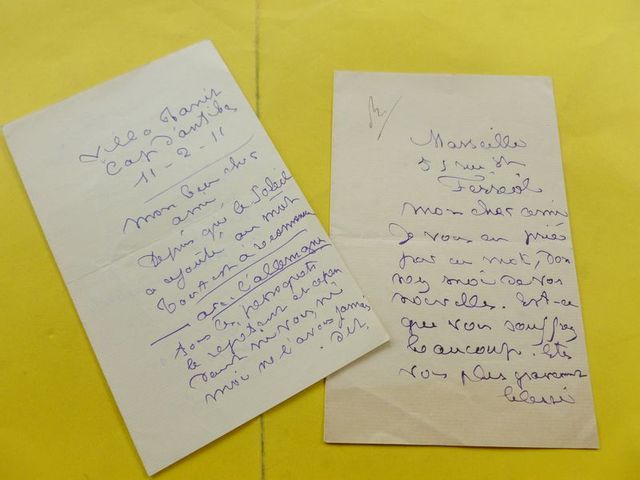 Villa
Cap d'antibes
11-2-11
mon bien cher
ami,
Depuis que le Soleil
a ajouté au mot
tout est à recommencer
avec l'allemagne
tous les perroquets
le répètent et cepen
dant ni vous, ni
moi ne l'avons jamais
dit.
Marseille
51 rue St
Ferréol
mon cher ami
Je vous en prie
par un mot, don
nez moi de vos
nouvelles. Est-ce
que vous souffrez
beaucoup. Etes
vous plus gravement
blessé